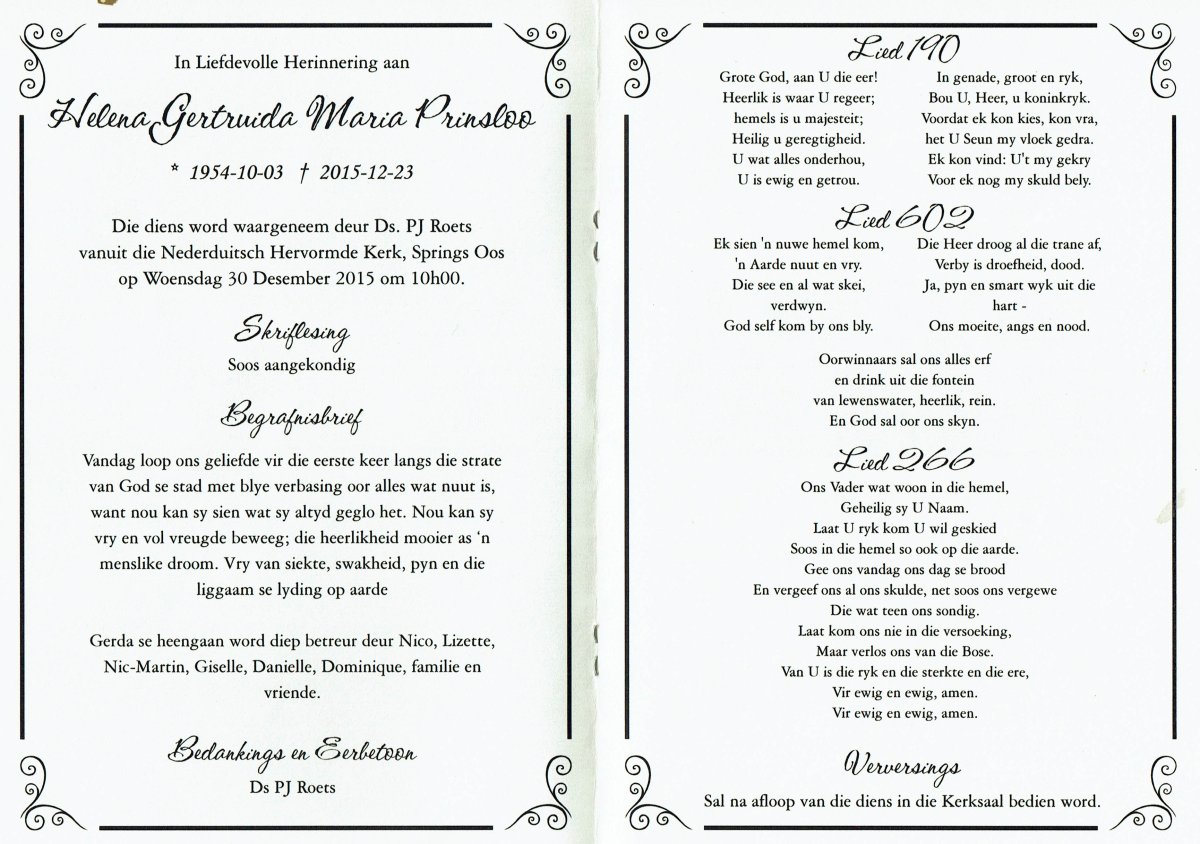 In Liefdevolle Herinnering aan
Helena Gertruida Maria Prinsloo
* 1954-10-03 † 2015-12-23
Die diens word waargeneem deur Ds. PJ Roets
vanuit die Nederduitsch Hervormde Kerk, Springs Oos
op Woensdag 30 Desember 2015 om 10h00.
Skriflesing
Soos aangekondig
Begrafnisbrief
Vandag loop ons geliefde vir die eerste keer langs die strate
van God se stad met blye verbasing oor alles wat nuut is,
want nou kan sy sien wat sy altyd geglo het. Nou kan sy
vry en vol vreugde beweeg; die heerlikheid mooier as ‘n
menslike droom. Vry van siekte, swakheid, pyn en die
liggaam se lyding op aarde
Gerda se heengaan word diep betreur deur Nico, Lizette,
Nic-Martin, Giselle, Danielle, Dominique, familie en
vriende.
Bedankings en Eerbetoon
Ds PJ Roets
Lied 190
Grote God, aan U die eer!
Heerlik is waar U regeer;
hemels is u majesteit;
Heilig u geregtigheid.
U wat alles onderhou,
U is ewig en getrou.
In genade, groot en ryk,
Bou U, Heer, u koninkryk.
Voordat ek kon kies, kon vra,
het U Seun my vloek gedra.
Ek kon vind: U't my gekry
Voor ek nog my skuld bely.
Lied 602
Ek sien 'n nuwe hemel kom,
'n Aarde nuut en vry.
Die see en al wat skei,
verdwyn.
God self kom by ons bly.
Die Heer droog al die trane af,
Verby is droefheid, dood.
Ja, pyn en smart wyk uit die
hart -
Ons moeite, angs en nood.
Oorwinnaars sal ons alles erf
en drink uit die fontein
van lewenswater, heerlik, rein.
En God sal oor ons skyn.
Lied 266
Ons Vader wat woon in die hemel,
Geheilig sy U Naam.
Laat U ryk kom U wil geskied
Soos in die hemel so ook op die aarde.
Gee ons vandag ons dag se brood
En vergeef ons al ons skulde, net soos ons vergewe
Die wat teen ons sondig.
Laat kom ons nie in die versoeking,
Maar verlos ons van die Bose.
Van U is die ryk en die sterkte en die ere,
Vir ewig en ewig, amen.
Vir ewig en ewig, amen.
Verversings
Sal na afloop van die diens in die Kerksaal bedien word.